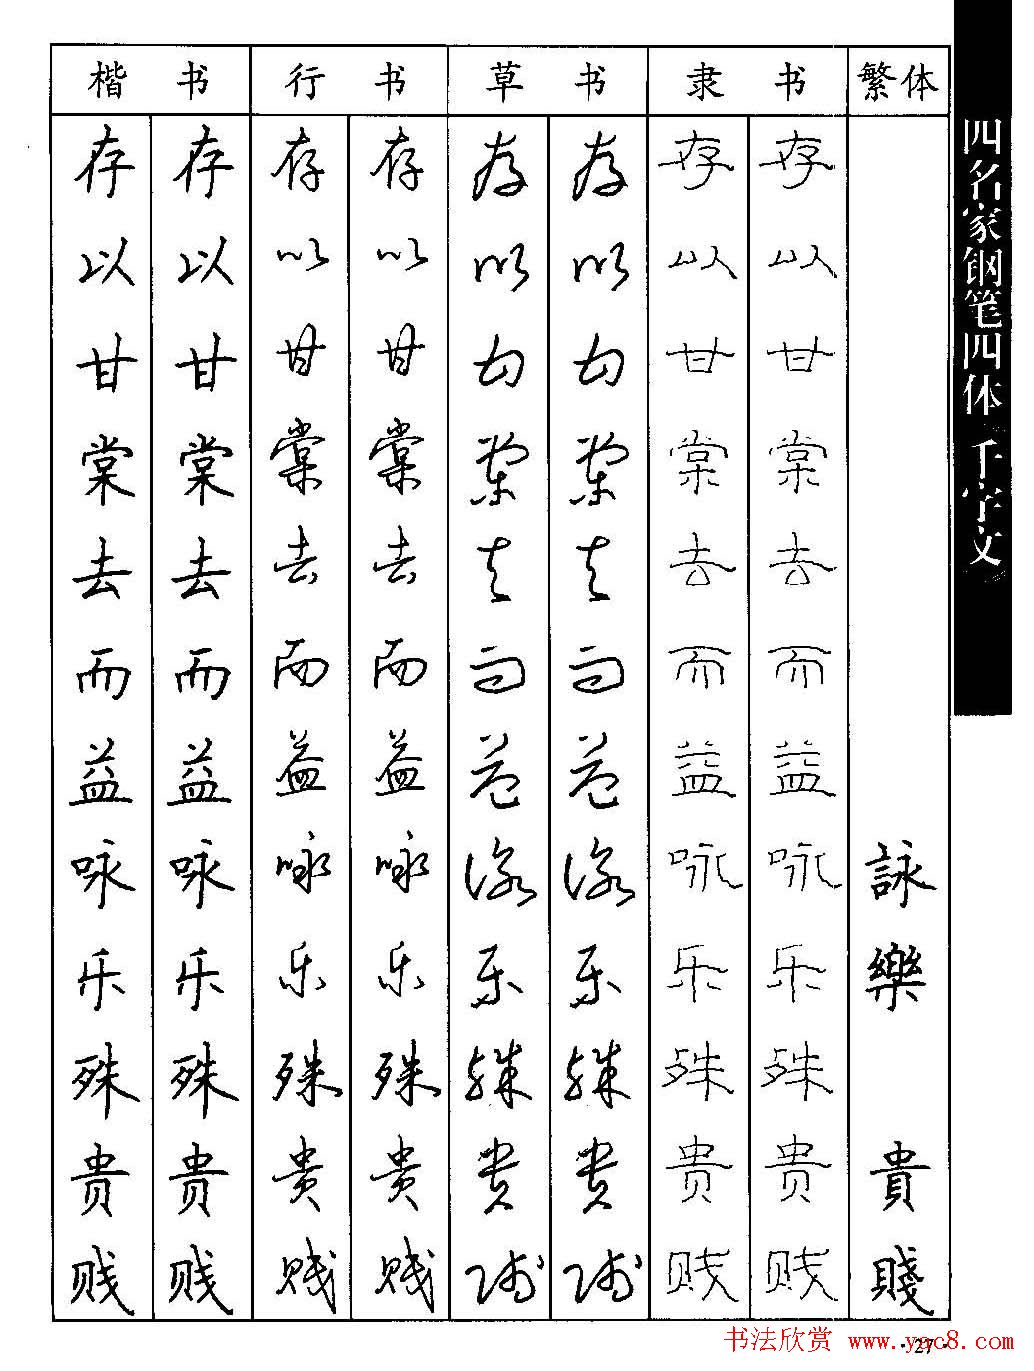 楷书 行书 草书 隶书 繁体
存 存 存 存 存 存 存 存
以 以 以 以 以 以 以 以
甘 甘 甘 甘 甘 甘 甘 甘
棠 棠 棠 棠 棠 棠 棠 棠
去 去 去 去 去 去 去 去
而 而 而 而 而 而 而 而
益 益 益 益 益 益 益 益
咏 咏 咏 咏 詠 詠 咏 咏 詠
乐 乐 乐 乐 乐 乐 乐 乐 樂
殊 殊 殊 殊 殊 殊 殊 殊
贵 贵 贵 贵 貴 貴 贵 贵 貴
贱 贱 贱 贱 贱 贱 贱 贱 賤
四名家钢笔四体 千字文
·27·
书法欣赏 www.yac8.com